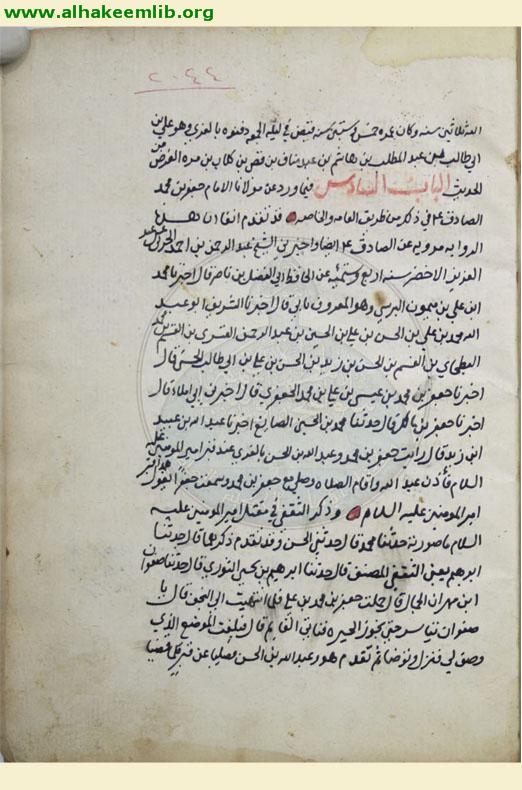 www.alhakeemlib.org
٢٠٤٤
الثلاثين سنه وكان عمره خمس وستين سنه قبض في ليله الجمعه دفنوه بالغري وهو علي بن
ابي طالب بن عبد المطلب بن هاشم بن عبد مناف بن قصي بن كلاب بن مره الغرض من
الحديث الباب السادس فيما ورد عن مولانا الامام جعفر بن محمد
الصادق ع في ذكر من طريق العامه والخاصه قد تقدم اتفا ان هذه
الروايه مرويه عن الصادق ع ايضا واخبرني الشيخ عبد الرحمن بن احمد الحربي عن عبد
العزيز الاخضر سنه اربع وستمئه عن الحافظ ابي الفضل بن ناصر قال اخبرنا محمد
ابن علي بن ميمون البرسي وهو المعروف بابي قال اخبرنا الشريف ابو عبد
الله محمد بن علي بن الحسن بن علي بن الحسين بن عبد الرحمن بن القسم بن محمد
البطحاي بن القسم بن الحسن بن زيد بن الحسن بن علي بن ابي طالب الحسني قال
اخبرنا جعفر بن محمد بن عيسى بن علي بن محمد الجعفري قال اخبرني ابي املاء قال
اخبرنا جعفر بن مالك قال حدثنا محمد بن الحسين الصايغ اخبرنا عبد الله بن عبيد
ابن زيد قال رايت جعفر بن محمد وعبد الله بن الحسن بالغري عند قبر امير المومنين عليه
السلام فأذن عبد الله واقام الصلاه وصلى مع جعفر بن محمد وسمعت جعفر يقول هذا قبر
امير المومنين عليه السلام وذكر الثقفي في مقتل امير المومنين عليه
السلام ما صورته حدثنا محمد قال حدثني الحسن وقد تقدم ذكرهما قال حدثنا
ابرهيم يعني الثقفي المصنف قال حدثنا ابرهيم بن يحيى الثوري قال حدثنا صفوان
ابن مهران الجمال قال حملت جعفر بن محمد بن علي فلما انتهيت الى النجف قال يا
صفوان تياسر حتى يجوز الحيره فتاتي القايم قال فبلغت الموضع الذي
وصف لي فنزل وتوضا ثم تقدم هو وعبد الله بن الحسن فصليا عند قبر فلما قضيا